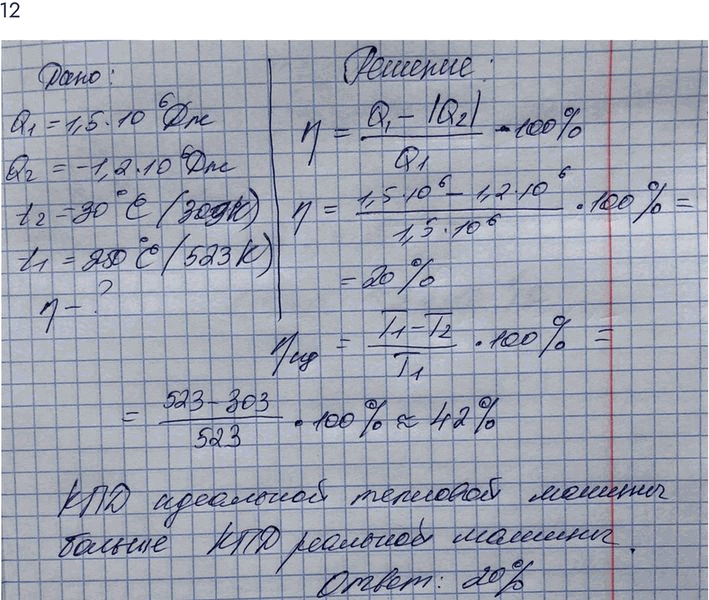 12
Дано:
Q₁ = 1,5·10⁶ Дж
Q₂ = -1,2·10⁶ Дж
t₂ = 30°C (303К)
t₁ = 250°C (523К)
η - ?
Решение:
η = (Q₁ - |Q₂|) / Q₁ · 100%
η = (1,5·10⁶ - 1,2·10⁶) / (1,5·10⁶) · 100% =
= 20%
ηид = (T₁ - T₂) / T₁ · 100% =
= (523 - 303) / 523 · 100% ≈ 42%
КПД идеальной тепловой машины
больше КПД реальной машины.
Ответ: 20%